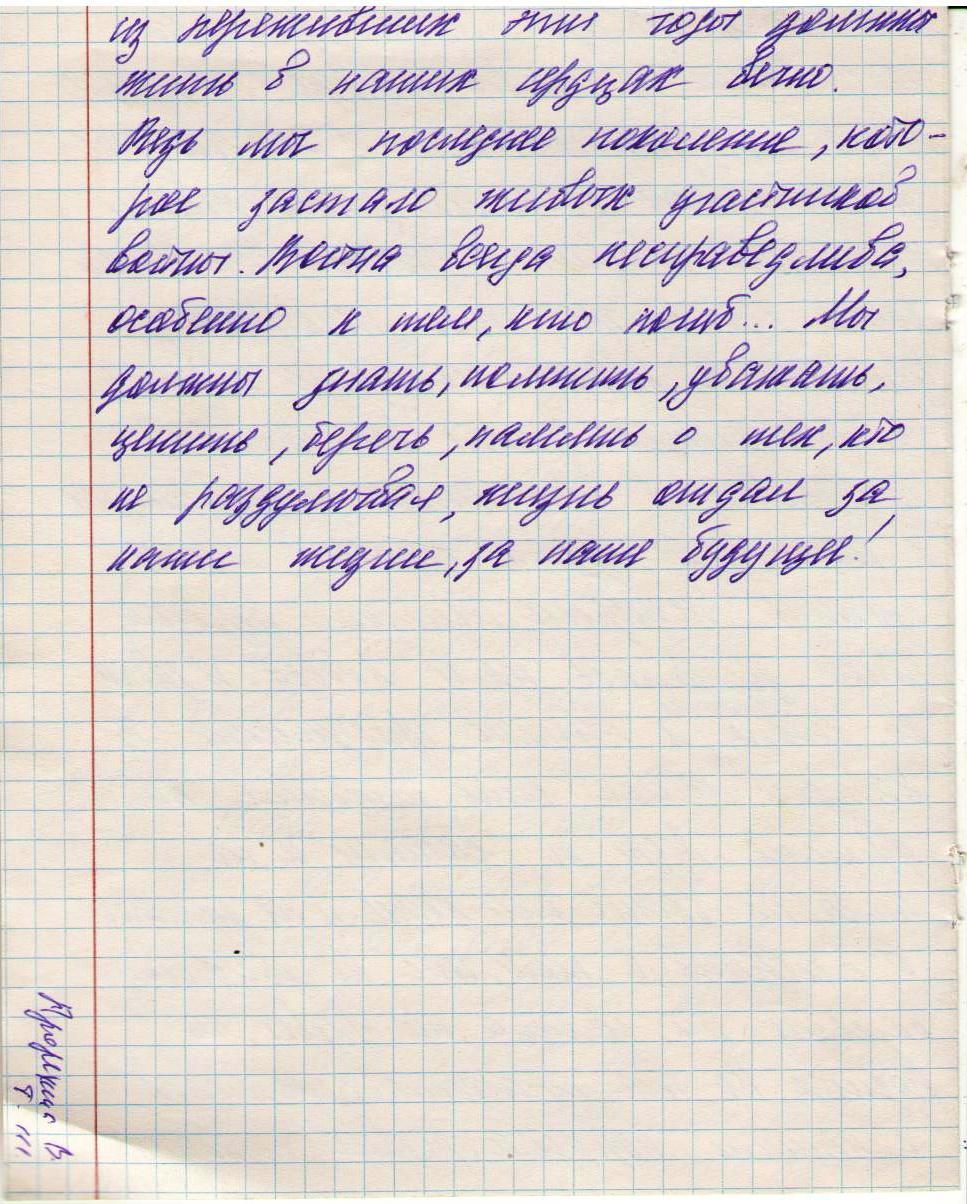 из переживших эти годы должны
жить в наших сердцах вечно.
Ведь мы последнее поколение, кото-
рое застало живых участников
войны. Война всегда несправедлива,
особенно к тем, кто погиб... Мы
должны знать, помнить, уважать,
ценить, беречь, память о тех, кто
не раздумывая, жизнь отдал за
наши жизни, за наше будущее!
В.